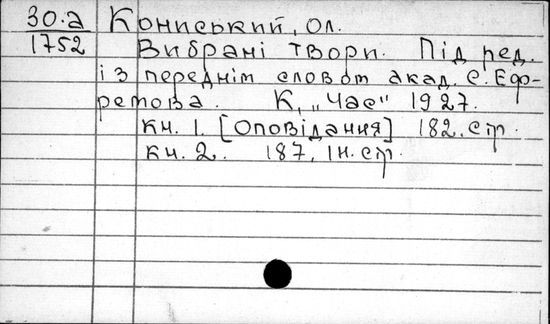 30.а Кониський, Ол.
1752 Вибрані твори. Під ред.
і з переднім словом акад. С. Єф-
ремова. К, "Час" 1927.
кн. 1. [Оповідання] 182. стр.
кн. 2. 187, 1н. стр.